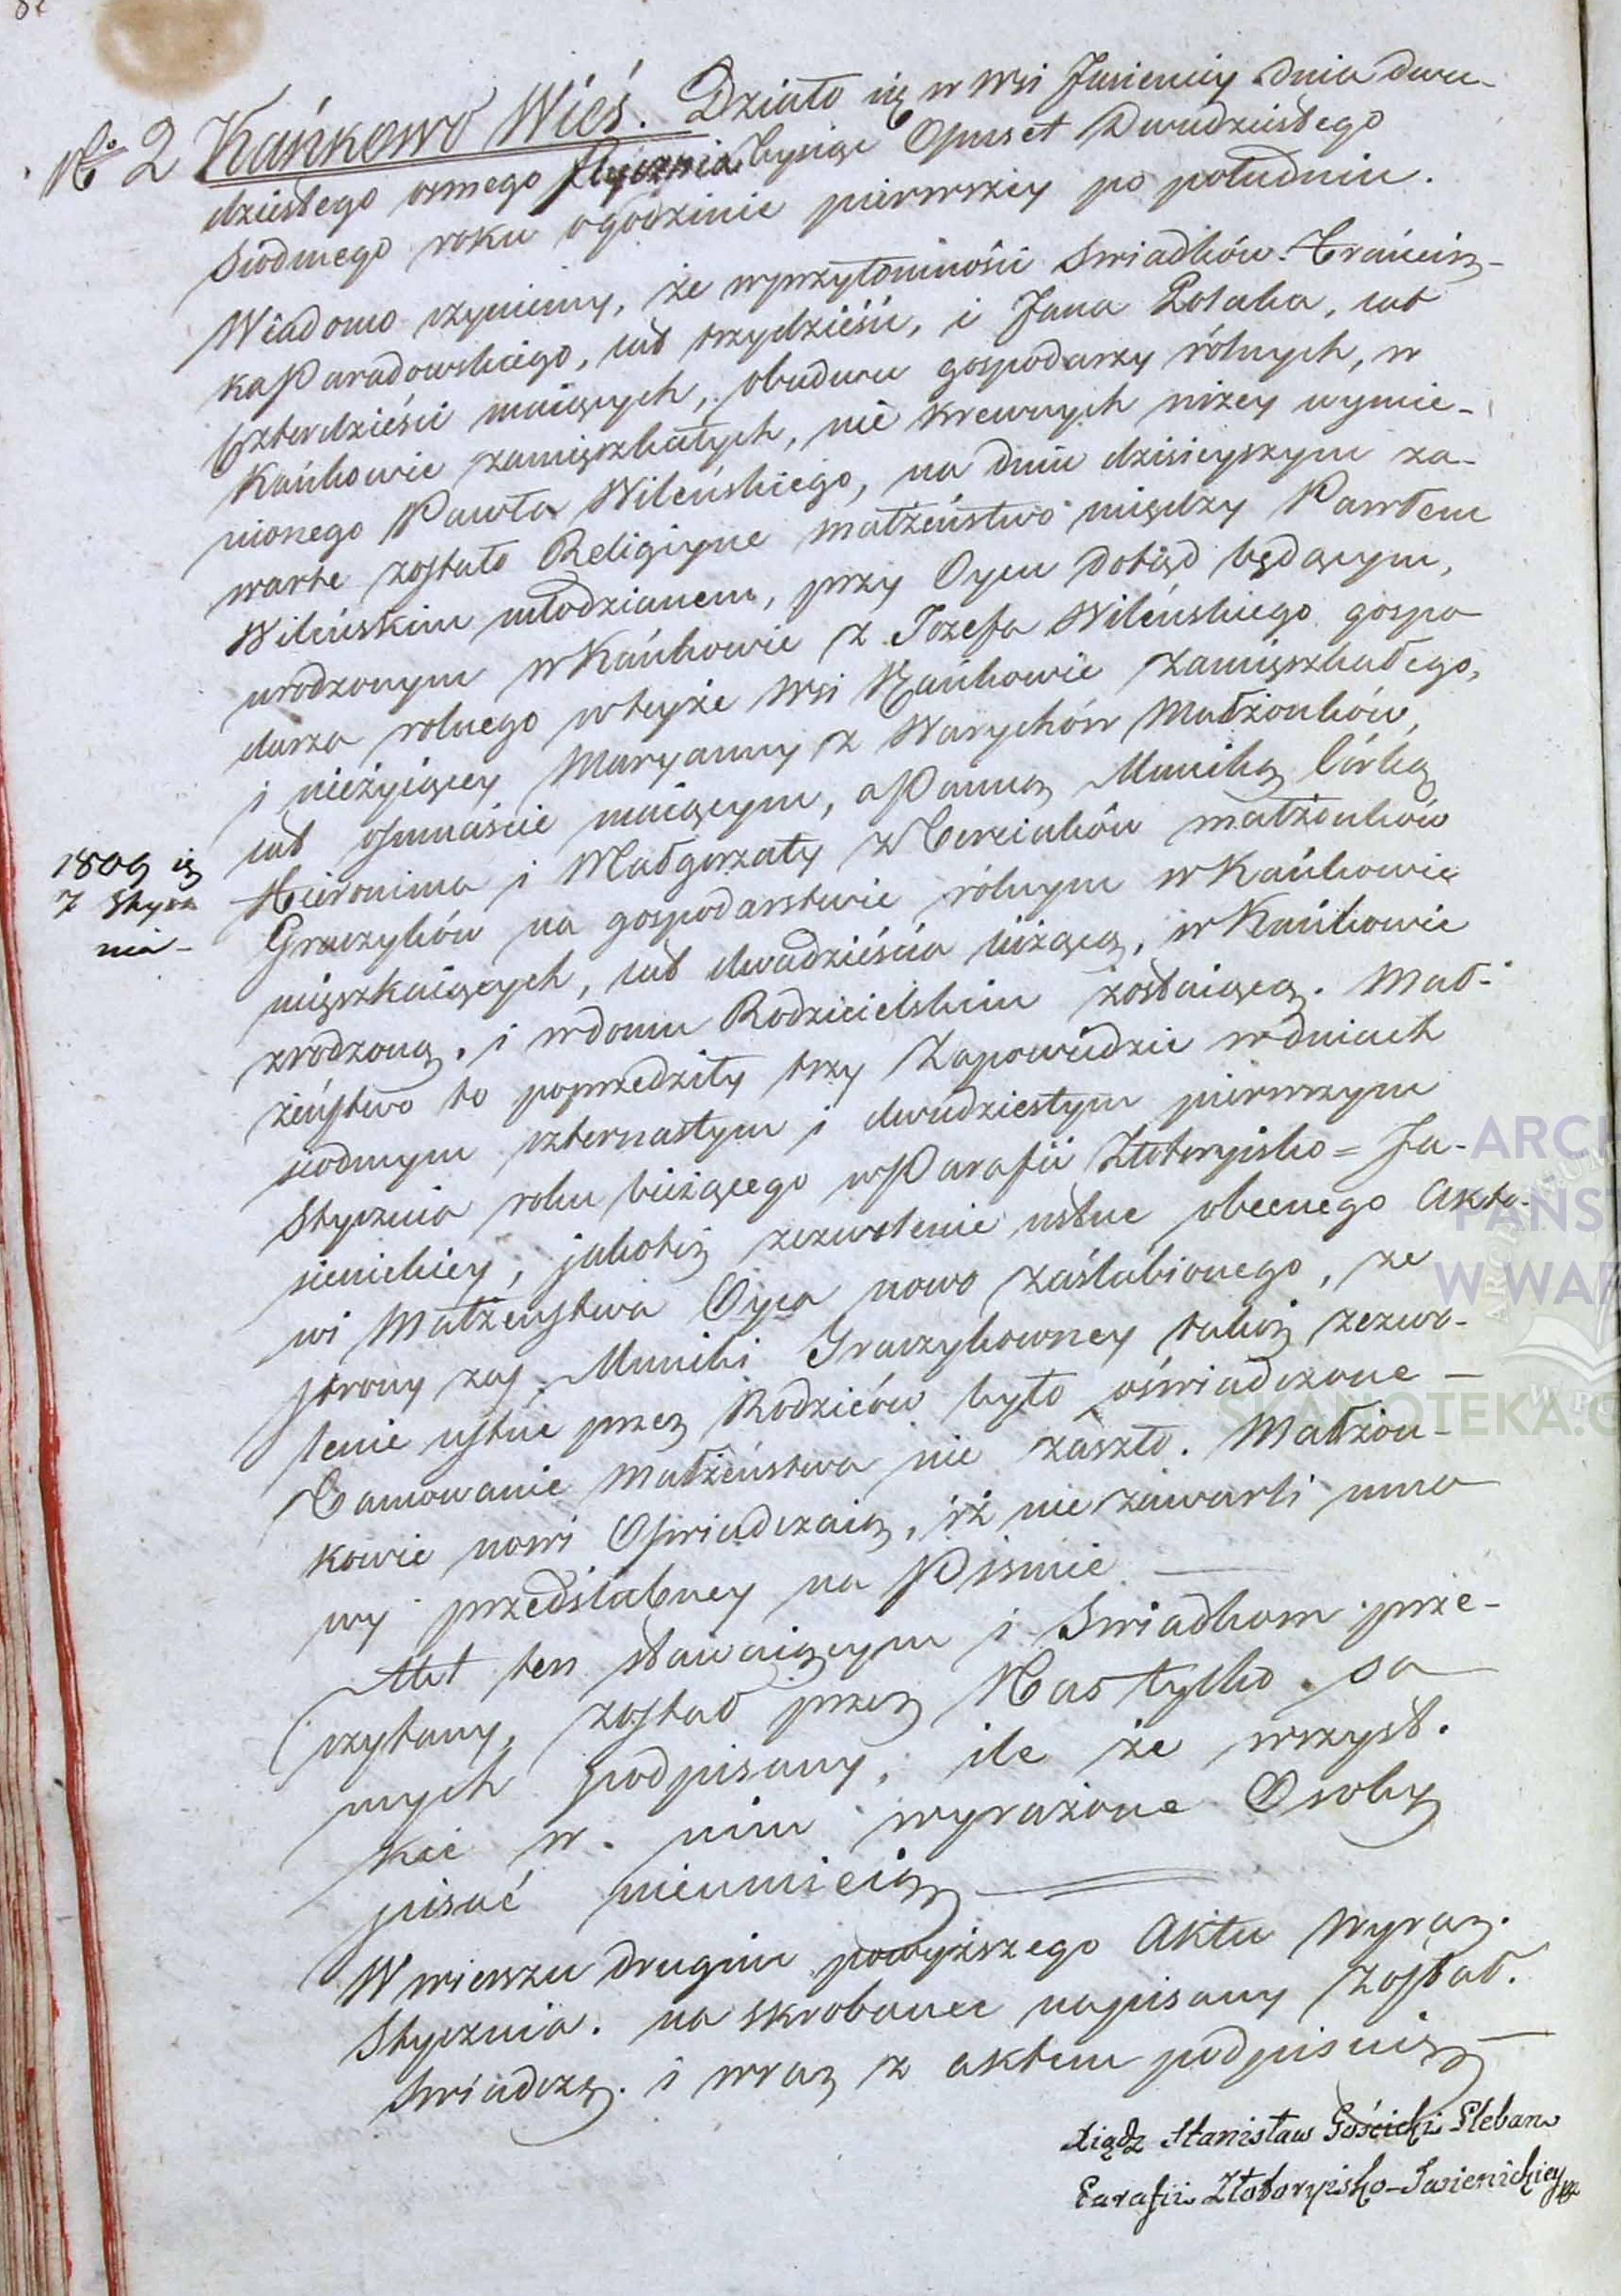 No 2 Kańkowo Wieś. Działo się w Wsi Jasienicy dnia dwu-
dziestego osmego stycznia tysiąc Ośmset Dwudziestego
Siódmego roku ogodzinie pierwszey po południu.
Wiadomo czyniemy, że wprzytomności Swiadków Francisz-
ka Paradowskiego, lat trzydzieści, i Jana Polaka, lat
Czterdzieści maiących, obudwu gospodarzy rólnych, w
Kańkowie zamięszkałych, nie krewnych niżey wymie-
nionego Pawła Wileńskiego, na dniu dzisieyszym za-
warte zostało Religiyne małżeństwo między Pawłem
Wileńskim młodzianem, przy Oycu dotąd będącym,
urodzonym w Kańkowie z Jozefa Wileńskiego gospo
darza rolnego wteyże Wsi Kańkowie zamięszkałego,
i nieżyiącey Maryanny z Warychów Małżonków,
lat osmnaście maiącym, a Panną Muniką Córką
Hieronima i Małgorzaty z małżonków
Graczyków na gospodarstwie rólnym w Kańkowie
mięszkaiących, lat dwadzieścia liczącą, w Kańkowie
zrodzoną, i wdomu Rodzicielskim zostaiącą. Mał-
żeństwo to poprzedziły trzy Zapowiedzie wdniach
siódmym czternastym i dwudziestym pierwszym
Stycznia roku bieżącego w Parafii Złotoryisko=Ja-
sienickiey, jakoteż zezwolenie ustne obecnego Akto-
wi Małżeństwa Oyca nowo zaślubionego, ze
strony zaś Muniki Graczykowney takoż zezwo-
lenie ustne przez Rodziców było oświadczone –
Tamowanie Małżeństwa nie zaszło. Małżon-
kowie nowi Oświadczaią, iż nie zawarli umo
wy przedślubney na Piśmie —
Akt ten stawaiącym i Swiadkom prze-
czytany, został przez Nas tylko sa
mych podpisany, ile że wszyst.
kie w nim wyrażone Osoby
pisać nieumieią
W wierszu drugim powyższego Aktu wyraz.
Stycznia. na skrobance napisany został.
świadczę. i wraz z aktem podpisuię —
Xiądz Stanisław Gościcki Pleban
Parafii Złotoryisko-Jasienickiey
1809 
7 Stycz
nia –
ARCH
PAŃST
W WAR
SKANOTEKA.G